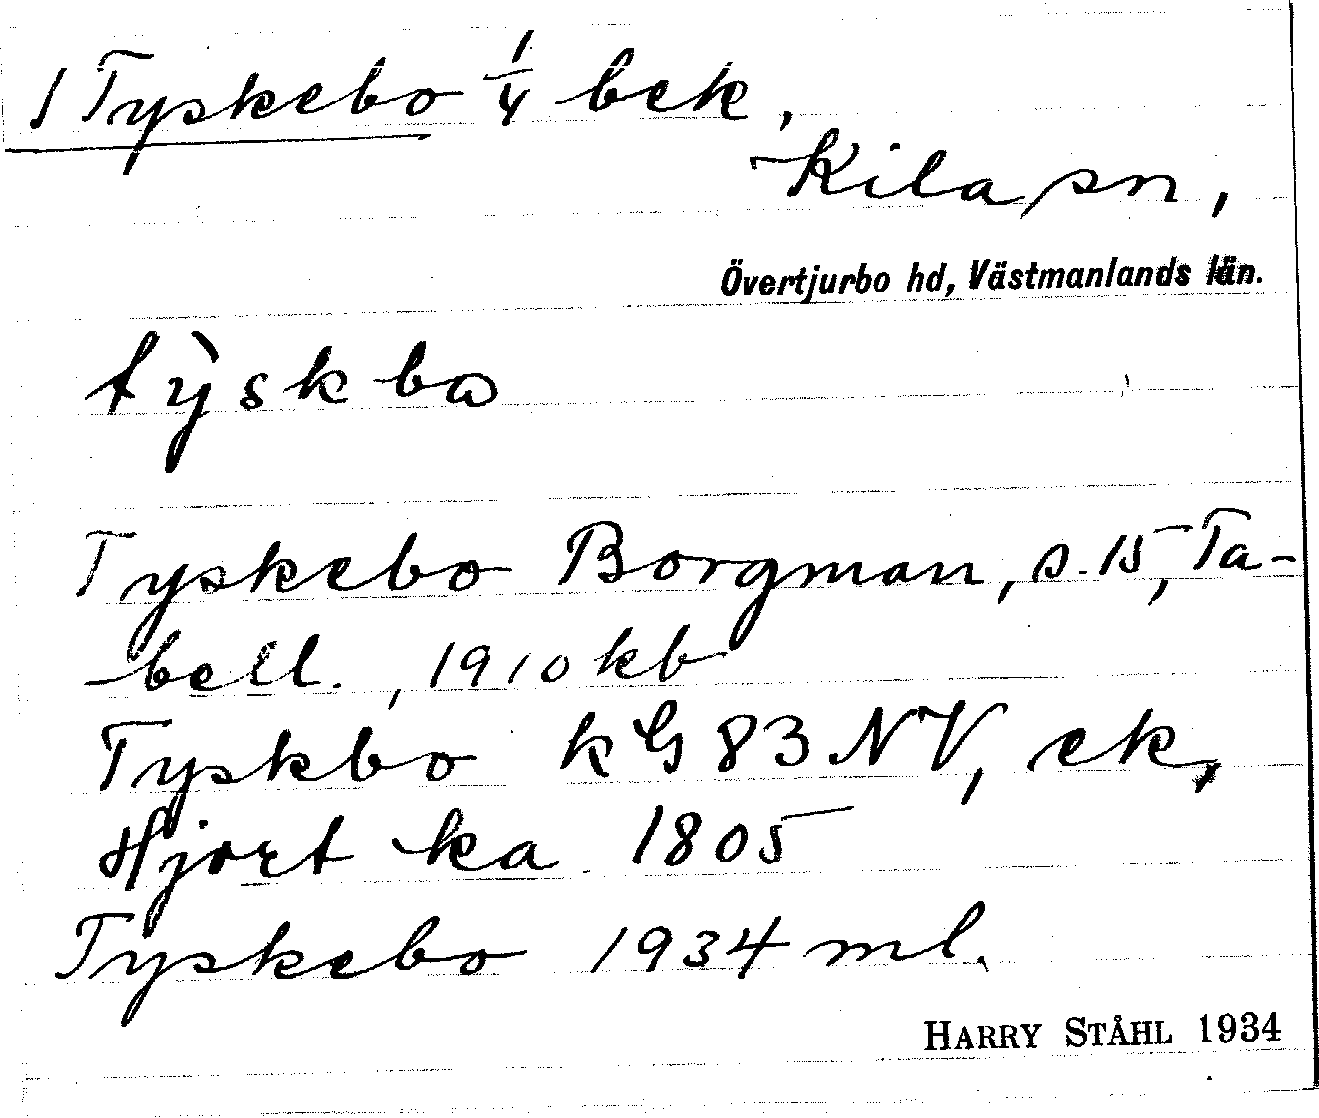 1 Tyskebo 1/4 bek,
Kila sn,
Övertjurbo hd, Västmanlands län.
tỳskbo
Tyskebo Borgman, s. 15, Ta-
bell., 1910 kb
Tyskbo kG 83 NV, ek,
Hjort ka 1805
Tyskebo 1934 ml.
HARRY STÅHL 1934